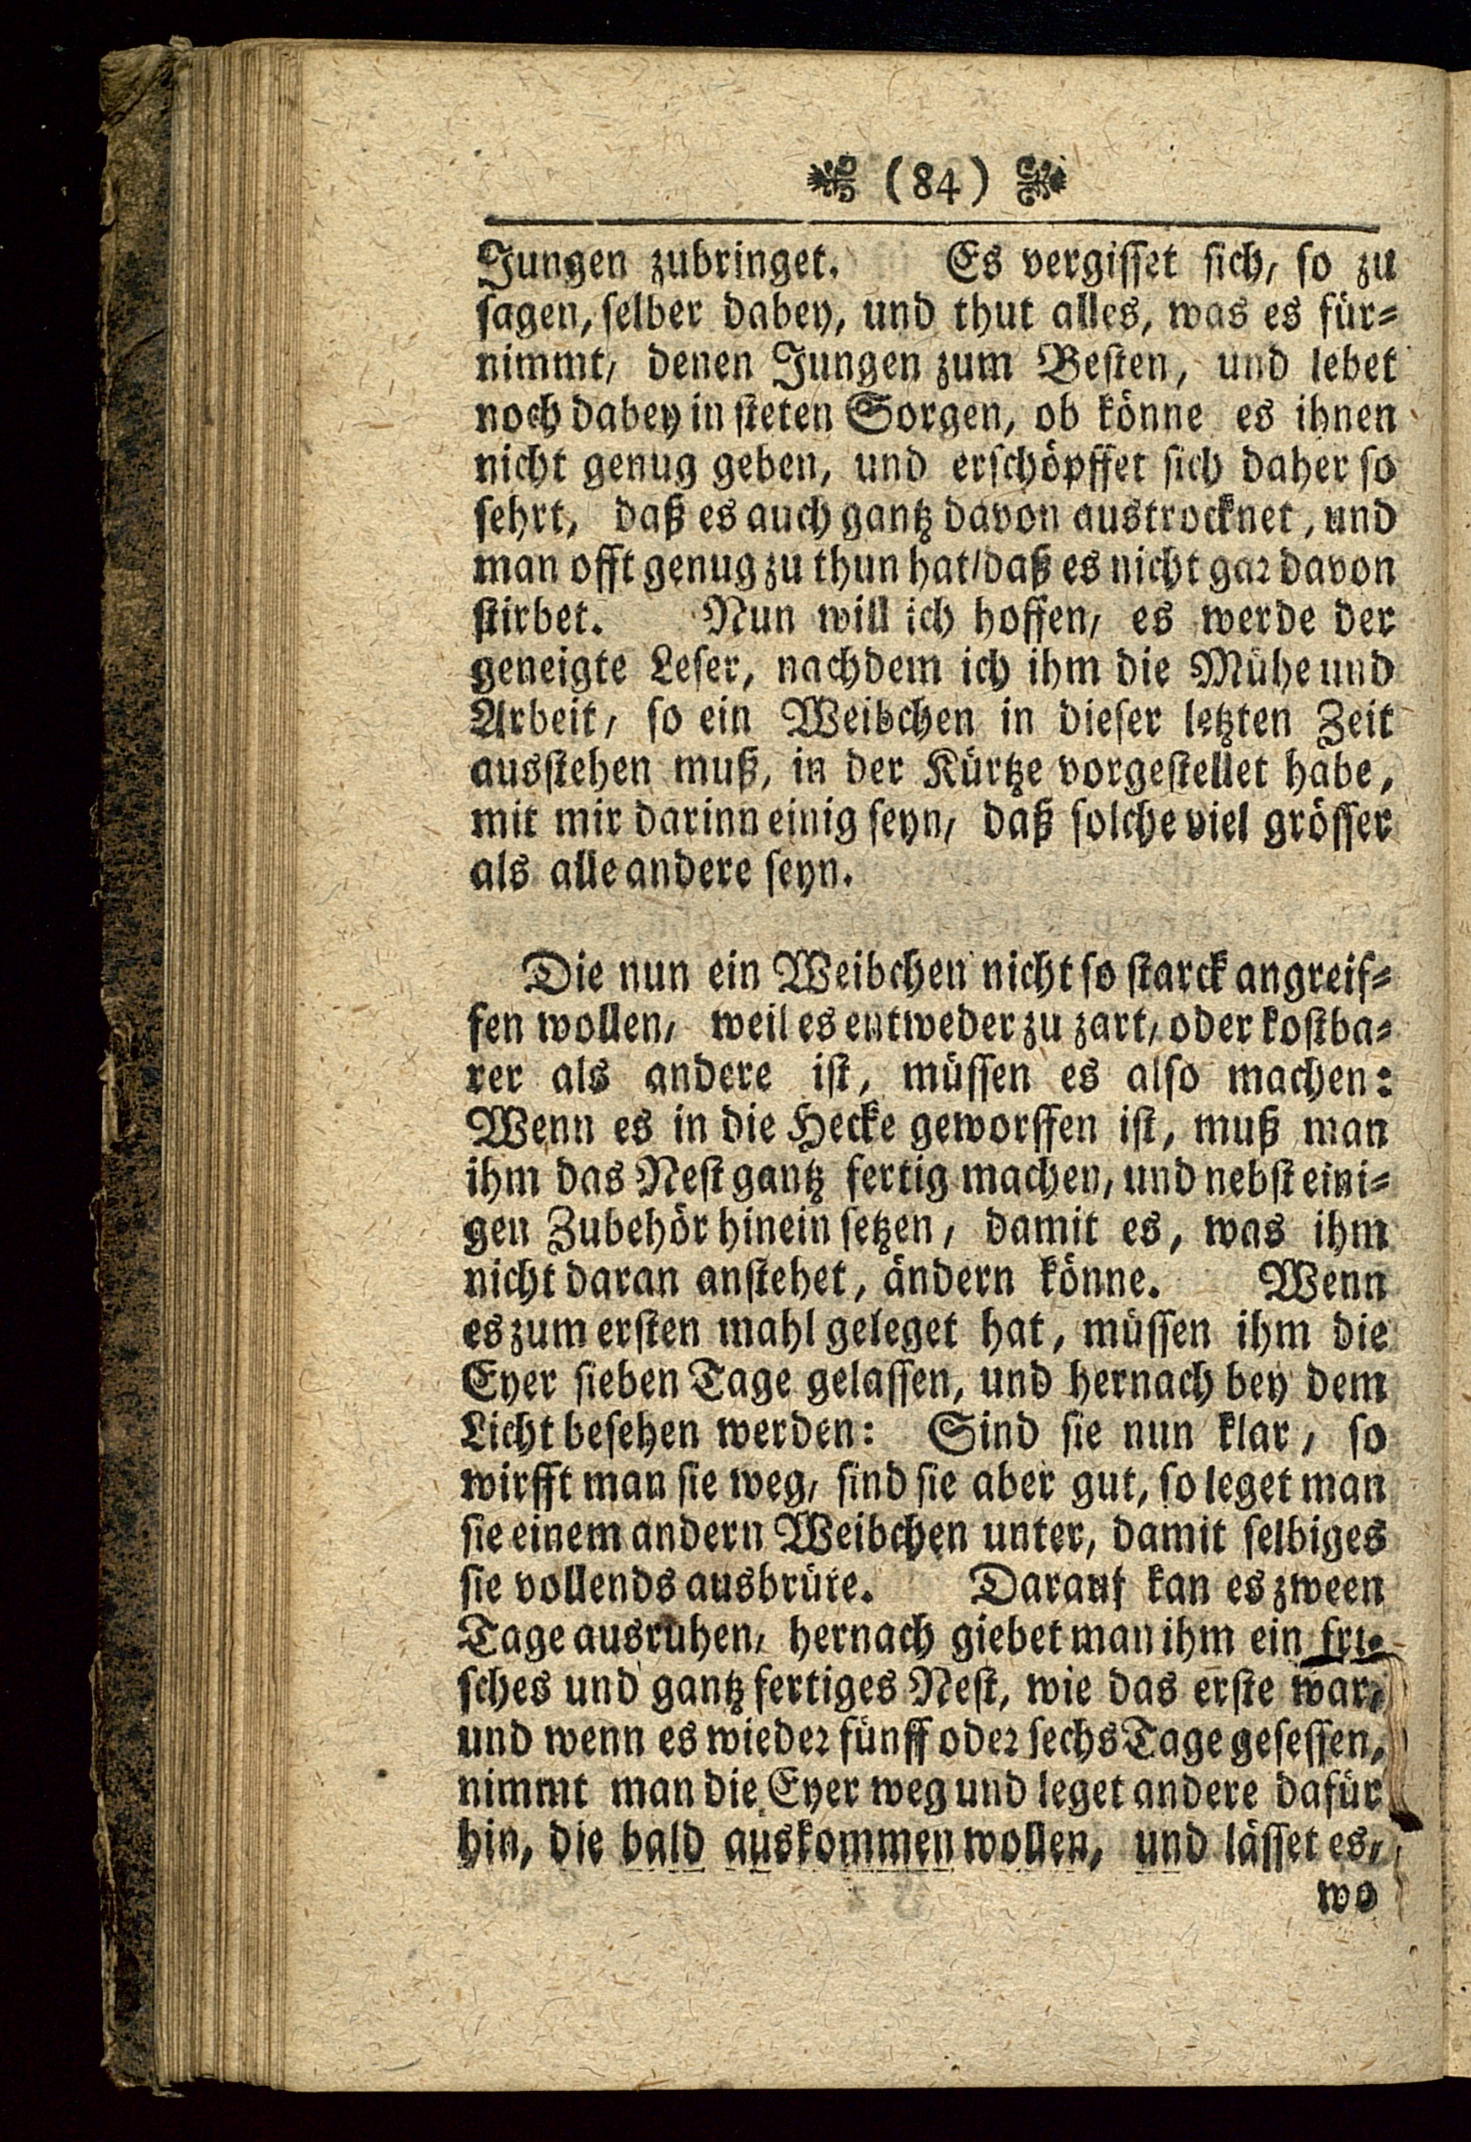 (84)
Jungen zubringet. Es vergisset sich, so zu
sagen, selber dabey, und thut alles, was es für-
nimmt, denen Jungen zum Besten, und lebet
noch dabey in steten Sorgen, ob könne es ihnen
nicht genug geben, und erschöpffet sich daher so
sehrt, daß es auch gantz davon austrocknet, und
man offt genug zu thun hat/daß es nicht gar davon
stirbet. Nun will ich hoffen, es werde der
geneigte Leser, nachdem ich ihm die Mühe und
Arbeit, so ein Weibchen in dieser letzten Zeit
ausstehen muß, in der Kürtze vorgestellet habe,
mit mir darinn einig seyn, daß solche viel grösser
als alle andere seyn.
Die nun ein Weibchen nicht so starck angreif-
fen wollen, weil es entweder zu zart, oder kostba-
rer als andere ist, müssen es also machen:
Wenn es in die Hecke geworffen ist, muß man
ihm das Nest gantz fertig machen, und nebst eini-
gen Zubehör hinein setzen, damit es, was ihm
nicht daran anstehet, ändern könne. Wenn
es zum ersten mahl geleget hat, müssen ihm die
Eyer sieben Tage gelassen, und hernach bey dem
Licht besehen werden: Sind sie nun klar, so
wirfft man sie weg, sind sie aber gut, so leget man
sie einem andern Weibchen unter, damit selbiges
sie vollends ausbrüte. Darauf kan es zween
Tage ausruhen, hernach giebet man ihm ein fri-
sches und gantz fertiges Nest, wie das erste war,
und wenn es wieder fünff oder sechs Tage gesessen,
nimmt man die Eyer weg und leget andere dafür
hin, die bald auskommen wollen, und lässet es,
wo